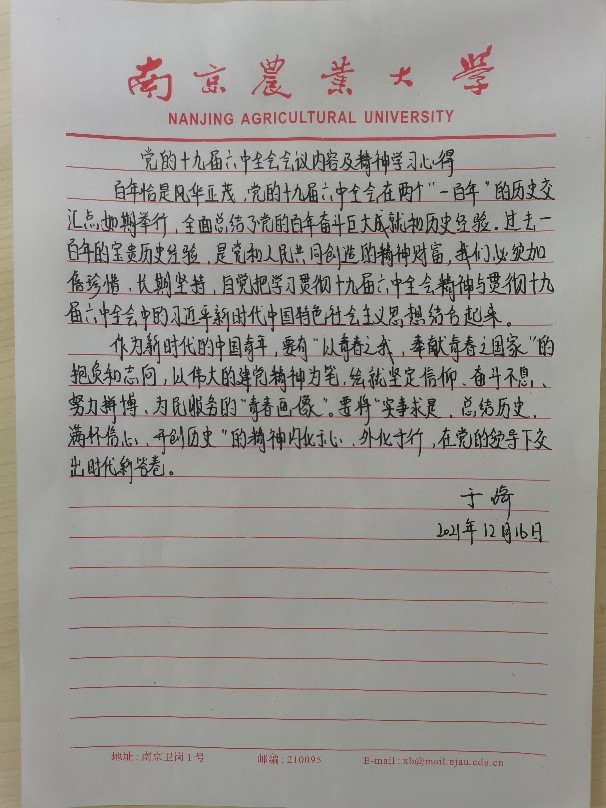 南京農業大學
NANJING AGRICULTURAL UNIVERSITY
党的十九届六中全会会议内容及精神学习心得
百年恰是风华正茂，党的十九届六中全会在两个“一百年”的历史交
汇点如期举行，全面总结了党的百年奋斗巨大成就和历史经验。过去一
百年的宝贵历史经验，是党和人民共同创造的精神财富，我们必须加
倍珍惜、长期坚持，自觉把学习贯彻十九届六中全会精神与贯彻十九
届六中全会中的习近平新时代中国特色社会主义思想结合起来。
作为新时代的中国青年，要有“以青春之我，奉献青春之国家”的
抱负和志向，以伟大的建党精神为笔，绘就坚定信仰、奋斗不息、
努力拼搏、为民服务的“青春画像”。要将“实事求是、总结历史、
满怀信心、开创历史”的精神内化于心、外化于行，在党的领导下交
出时代新答卷。
于
2021年12月16日
地址：南京卫岗1号 邮编：210095 E-mail：xb@mail.njau.edu.cn